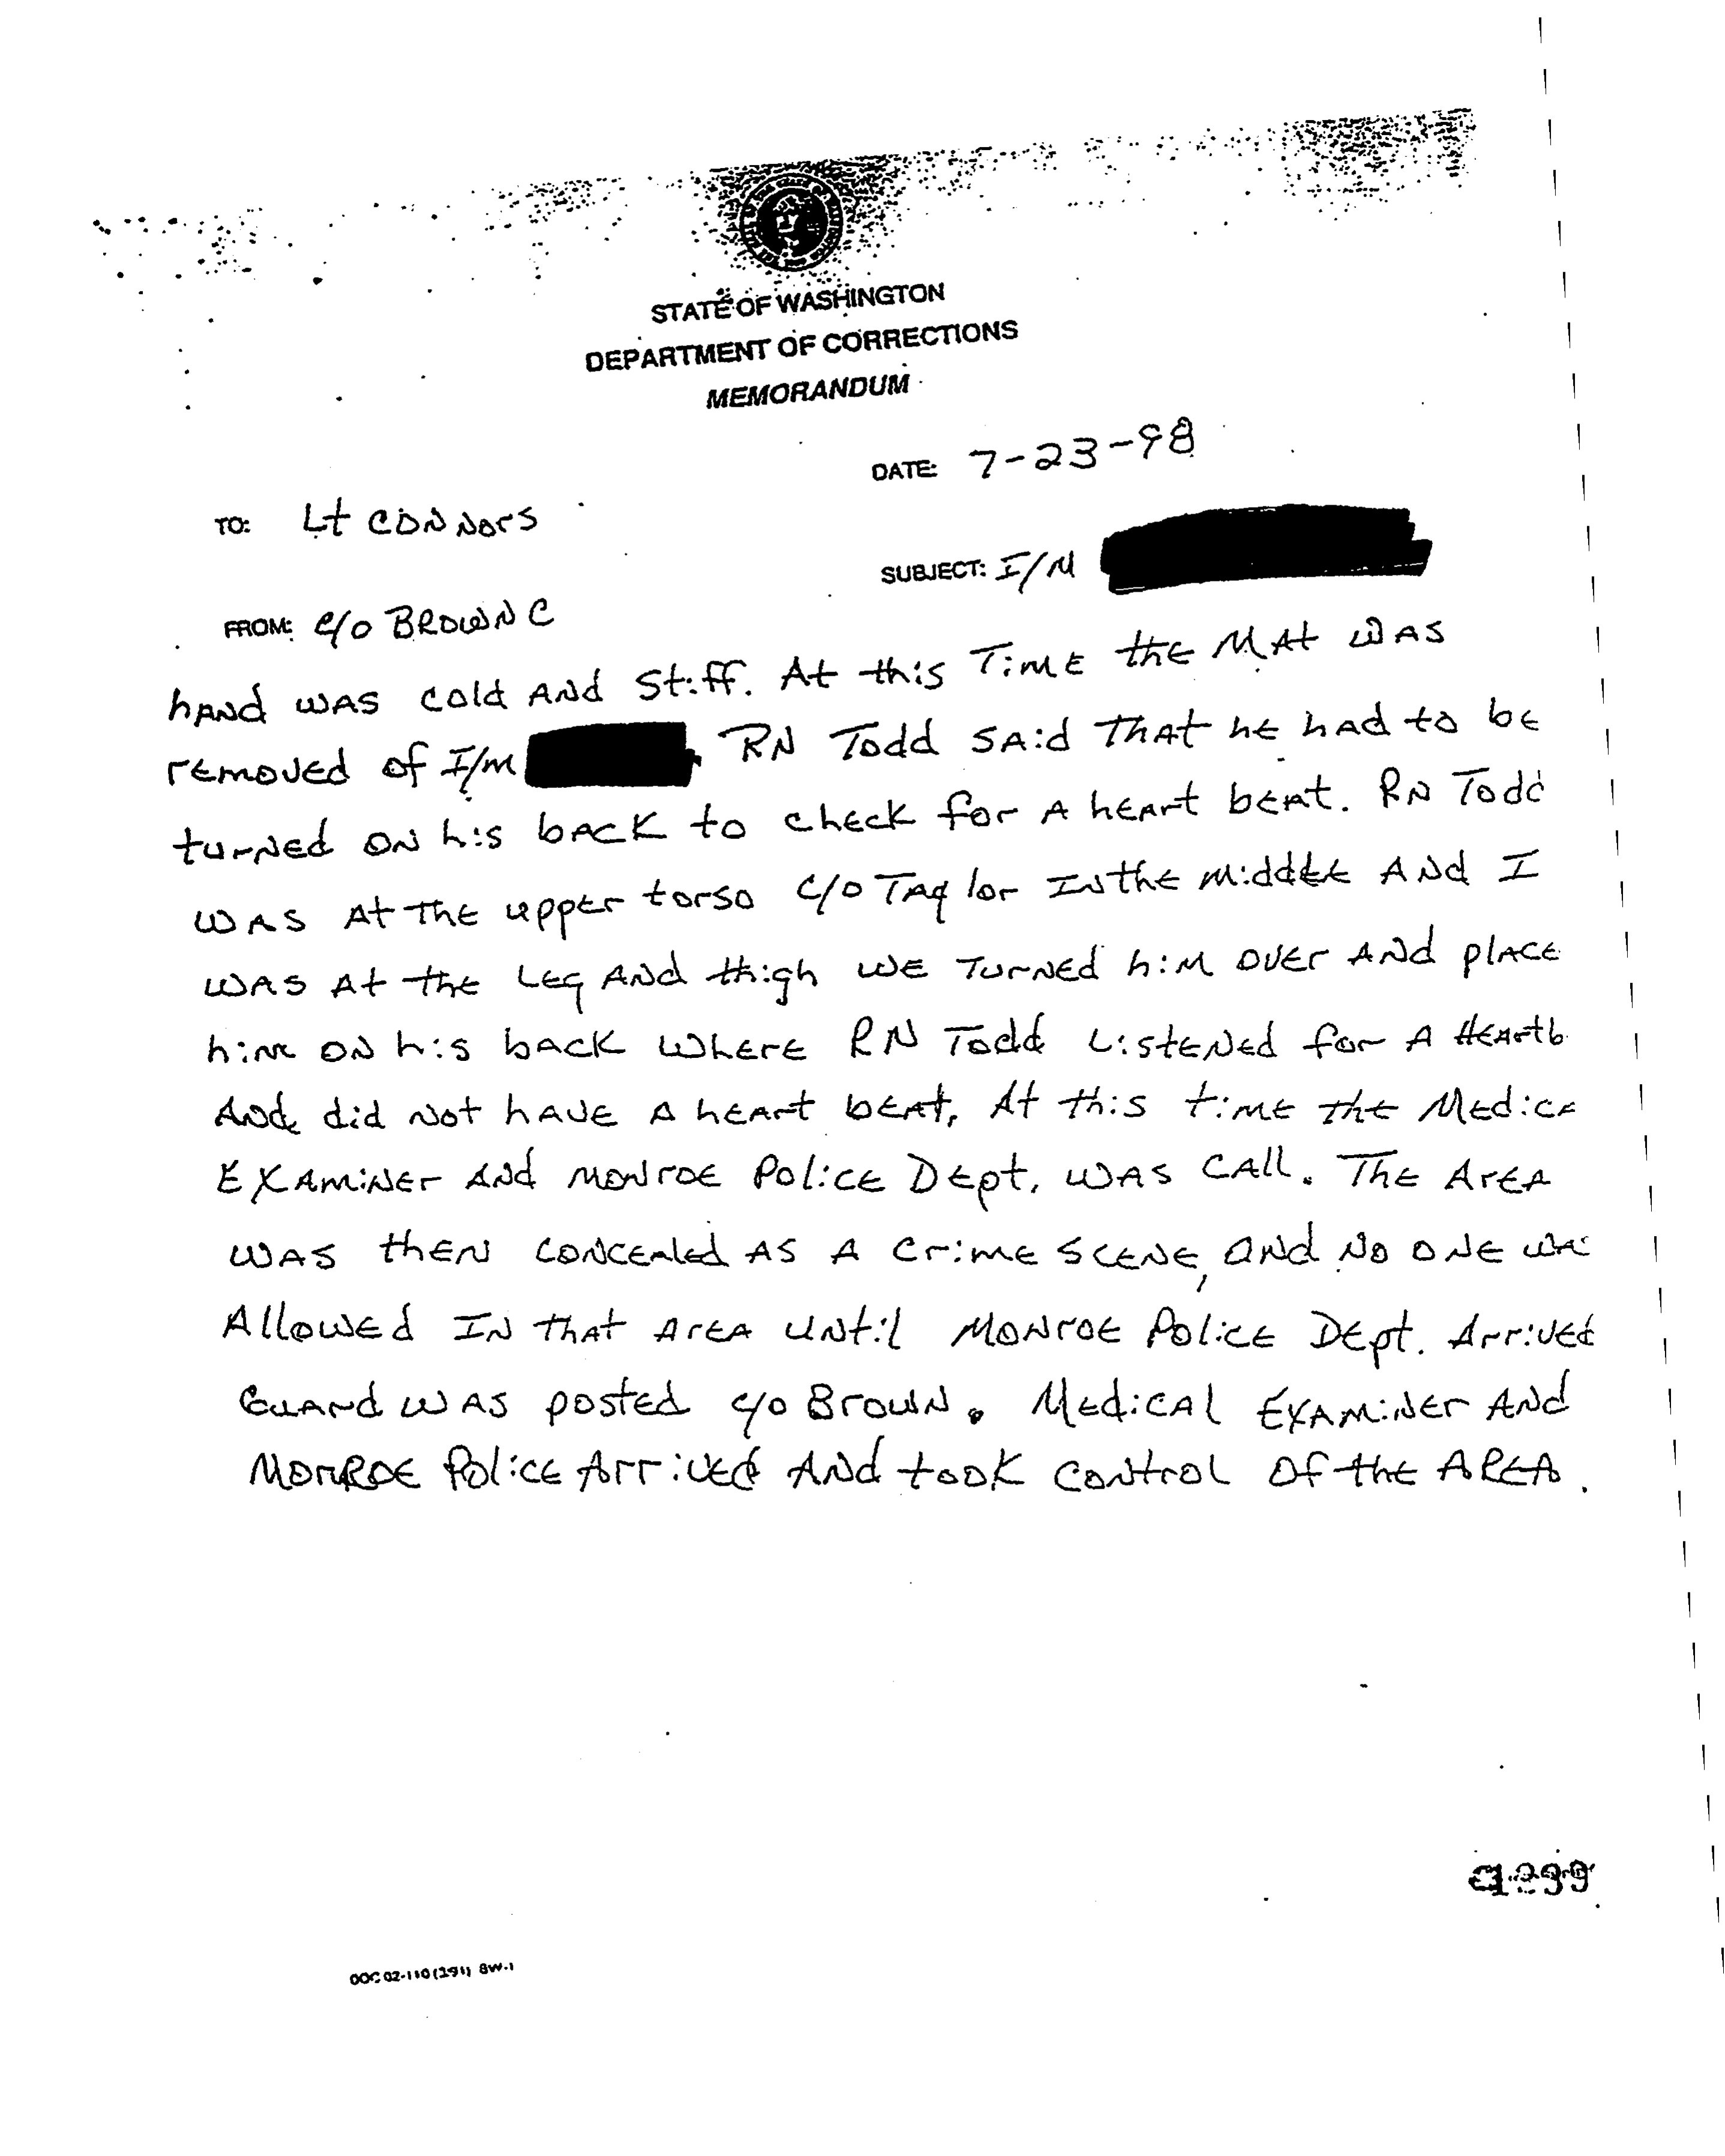 STATE OF WASHINGTON
DEPARTMENT OF CORRECTIONS
MEMORANDUM
DATE: 7-23-98
TO: Lt CONNors
SUBJECT: I/M
FROM: C/O BROWN C
hAND WAS Cold AND Stiff. At this TiME the MAt WAS
rEMOVED of I/M RN Todd SAid THAT hE hAD to bE
turNED ON his bACK to chECK for A hEArt bEAt. RN Todd
WAS At THE uppEr torso C/O TAylor IN thE MiddlE AND I
WAS At thE LEg AND thigh WE TurNED hiM OVEr AND plACE
hiM ON his bACK WhErE RN Todd ListENED for A HEArtb
AND did Not hAVE A hEArt bEAt, At this tiME thE MEdicA
EXAMiNEr AND MONroE PolicE DEpt. WAS CALL. THE ArEA
WAS thEN CONCEAlEd AS A CriME SCENE, AND NO ONE WA
AllowEd IN thAT ArEA UNtil MONroE PolicE DEpt. ArrivEd
GuArd WAS postEd C/O BrowN. MEdicAl EXAMiNEr AND
MONROE PolicE ArrivEd AND tooK CoNtrol Of thE AREA.
DOC 02-110 BW-1